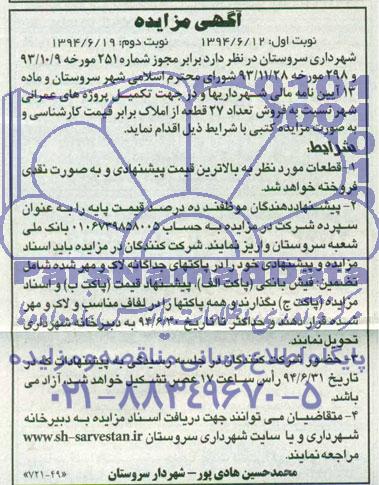 آگهی مزایده
نوبت اول: ۱۳۹۴/۶/۱۲ نوبت دوم: ۱۳۹۴/۶/۱۹
شهرداری سروستان در نظر دارد برابر مجوز شماره ۲۵۱ مورخه ۹۳/۱۰/۹
و ۲۹۸ مورخه ۹۳/۱۱/۲۸ شورای محترم اسلامی شهر سروستان و ماده
۱۳ آیین نامه مالی شهرداریها و در جهت تکمیل پروژه های عمرانی
شهر نسبت به فروش تعداد ۲۷ قطعه از املاک برابر قیمت کارشناسی و
به صورت مزایده کتبی با شرایط ذیل اقدام نماید.
شرایط:
۱- قطعات مورد نظر به بالاترین قیمت پیشنهادی و به صورت نقدی
فروخته خواهد شد.
۲- پیشنهاددهندگان موظفند ده درصد قیمت پایه را به عنوان
سپرده شرکت در مزایده به حساب ۰۱۰۶۷۳۹۸۵۸۰۰۵ بانک ملی
شعبه سروستان واریز نمایند. شرکت کنندگان در مزایده باید اسناد
مزایده و پیشنهادی خود را در پاکتهای جداگانه لاک و مهر شده شامل
تضمین فیش بانکی (پاکت الف)، پیشنهاد قیمت (پاکت ب) و اسناد
مزایده (پاکت ج) بگذارند و همه پاکتها را در لفاف مناسب و لاک و مهر
شده قرار دهند و حداکثر تا تاریخ ۹۴/۶/۳۰ به دبیرخانه شهرداری
تحویل نمایند.
۳- حضور شرکت کنندگان در جلسه رسیدگی به پیشنهادات که در
تاریخ ۹۴/۶/۳۱ رأس ساعت ۱۷ عصر تشکیل خواهد شد، آزاد می
باشد.
۴- متقاضیان می توانند جهت دریافت اسناد مزایده به دبیرخانه
شهرداری و یا سایت شهرداری سروستان www.sh-sarvestan.ir
مراجعه نمایند.
محمدحسین هادی پور – شهردار سروستان
«۷۲۱-۴۹»
ParsNamadData
پایگاه اطلاع رسانی مناقصه و مزایده
۰۲۱-۸۸۳۴۹۶۷۰-۵